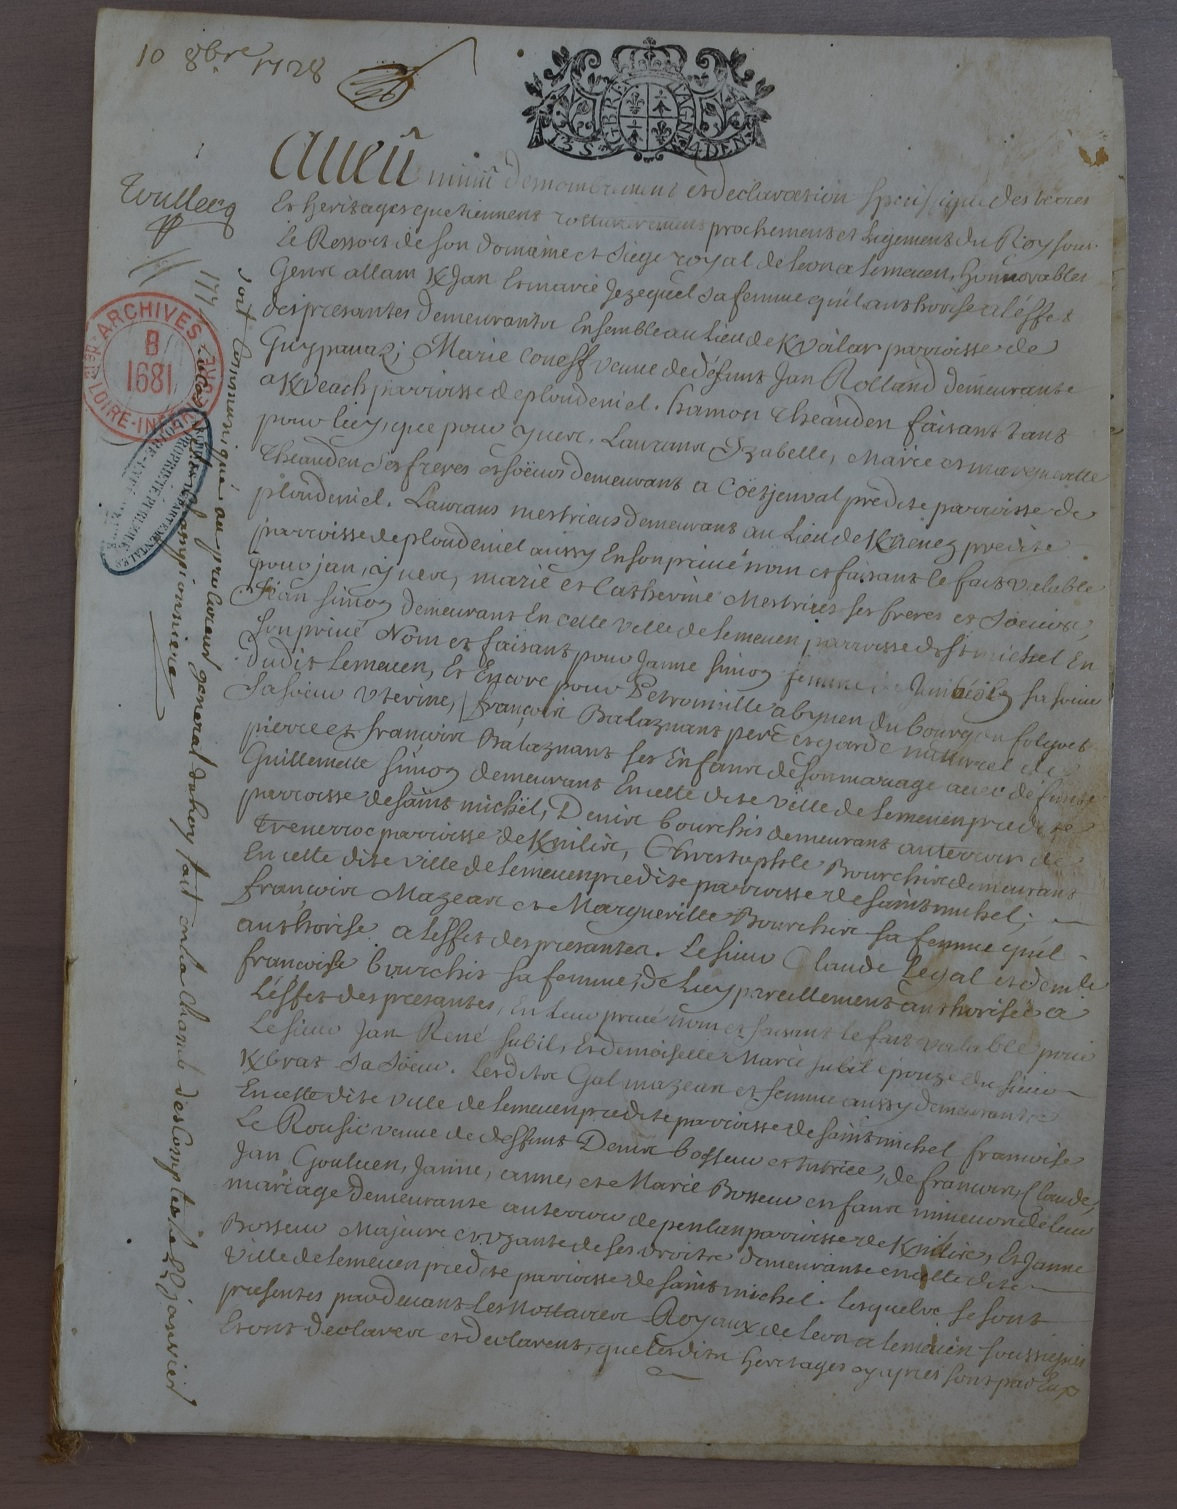 10 8bre 1728
BRETAGNE
13 S. 4 DEN.
ARCHIVES
B
1681
Aveu minu demombrement et declaration speciffique des terres
Et heritages que tiennent rotturierement prochement et Ligement du Roy sous
Le Ressort de son domaine et siege royal de Leon a Lesneven, honnorables
Genre allain KJan Et marie Jezequel sa femme qu'il authorise a l'effet
des presantes demeurants Ensemble au Lieu de Kvoilar parroisse de
Guypavaz; Marie coueff veuve de deffunt Jan Rolland demeurante
a Kveach parroisse de ploudeniel. hamon Theauden faisant tant
pour luy, que pour yuere, Laurans Izabelle, Marie et margueritte
Theauden ses freres et soeurs demeurant a Coetjenval predite parroisse de
ploudeniel. Laurans mestrius demeurant au Lieu de Knenez predite
parroisse de ploudeniel aussy En son privé nom et faisant le fait valable
pour jan, yuere, marie et Catherine Mestrius ses freres et soeurs,
Jan simon demeurant En cette ville de lesneven parroisse de st michel En
son privé Nom et faisant pour Janne simon femme sa soeur
dudit Lesneven, Et Encore pour Petronnille abynen du bourg en folgoet
Sa soeur uterine, françois Balaznant pere et garde naturel de
pierre et françois Balaznant ses Enfants de son mariage avec deffunte
Guillemette simon demeurant En cette dite ville de Lesneven predite
parroisse de saint michel, Denis bourchis demeurant au terroir de
Trenerroc parroisse de Knilis, Christophle Bourchis demeurant
En cette dite ville de Lesneven predite parroisse de saint michel;
françois Mazean et Margueritte Bourchis sa femme qu'il
authorise a l'effet des presantes. Le sieur Claude Le gal et demlle
francoise bourchis sa femme, de Luy pareillement authorisée a
L'effet des presantes, En leur privé nom et faisant le fait valable pour
Le sieur Jan René subil, Et demoiselle Marie subil epouze du sieur
Kbrat sa soeur. Lesdits Gal mazean et femme aussy demeurants
En cette dite ville de Lesneven predite parroisse de saint michel francoise
Le Rousic veuve de deffunt Denis bosseur et tutrice, de francois, Claude,
Jan Goulven, Janne, anne, et Marie Bosseur enfants mineurs de leur
mariage demeurante au terroir de penlan parroisse de Knilis, Et Janne
Bosseur Majeure et uzante de ses droits demeurante en cette dite
ville de Lesneven predite parroisse de saint michel. lesquels se sont
presentes pardevant les nottaires Royaux de Leon a Lesneven soussignés
Et ont declarer et declarent, que lesdits heritages cy apres sont par Eux
soit Communiqué au procureur general du Roy fait en la chambre des Comptes le 22 janvier